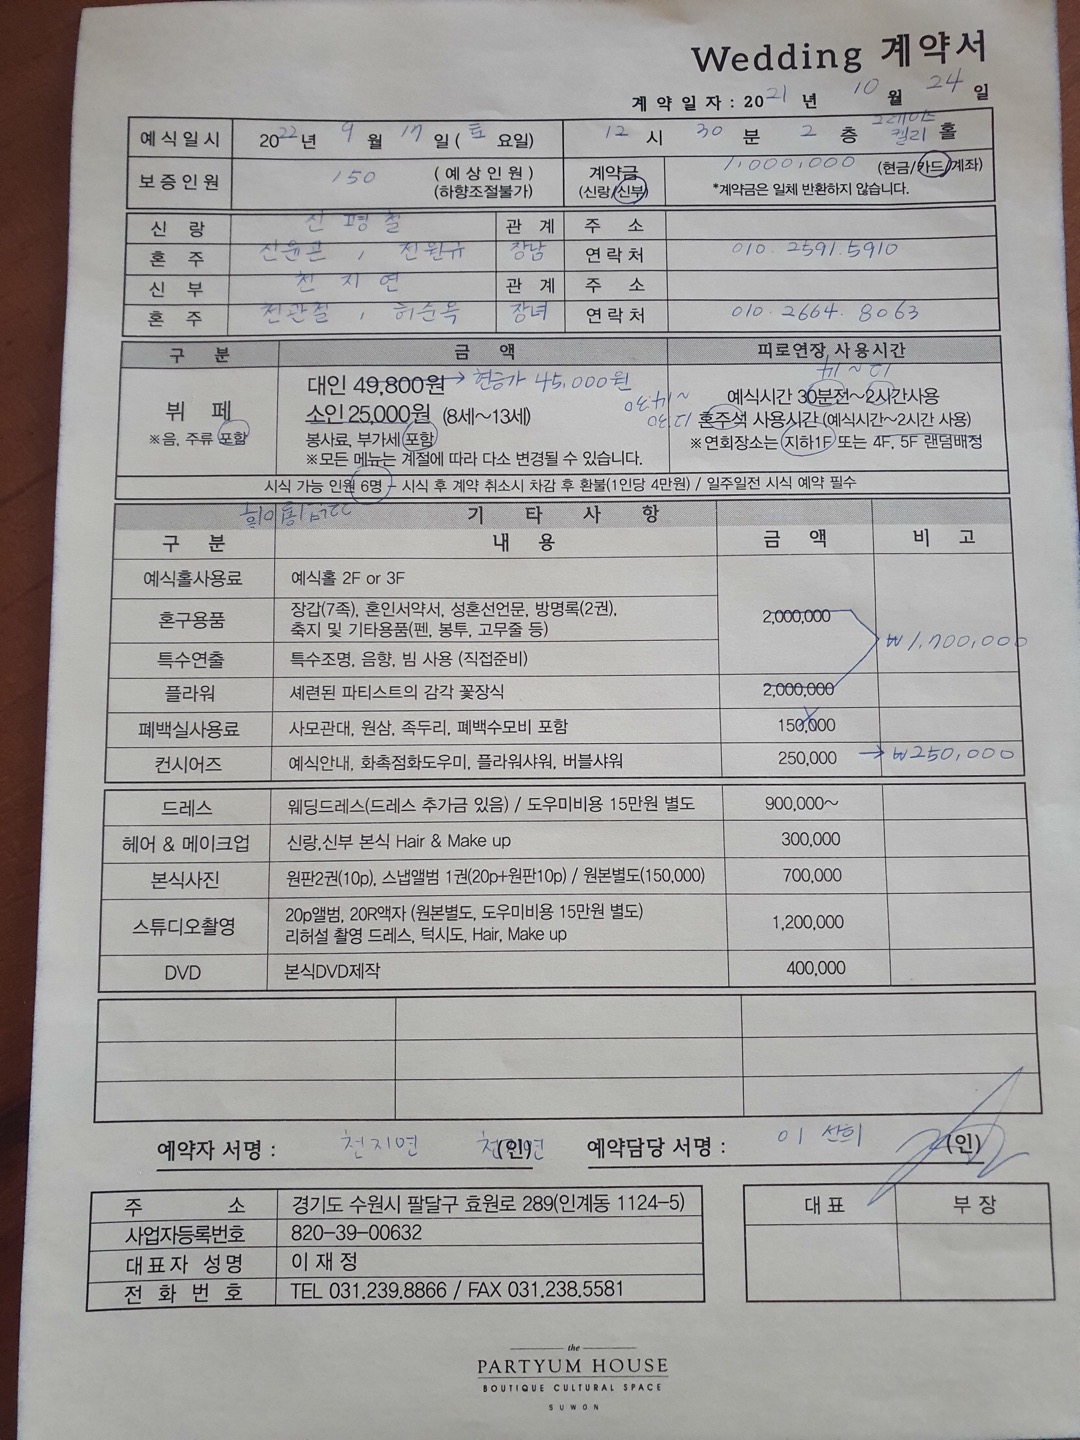 Wedding 계약서
계약일자 : 2021 년 10 월 24 일
예식일시 2022년 9 월 17 일 ( 토 요일) 12 시 30 분 2 층 그레이스켈리 홀
보증인원 150 (예상인원) (하향조절불가) 계약금 (신랑/신부) 1,000,000 (현금/카드/계좌)
*계약금은 일체 반환하지 않습니다.
신 랑 신 평 철 관 계 주 소
혼 주 신윤균 , 진원규 장남 연락처 010. 2591. 5910
신 부 천 지 연 관 계 주 소
혼 주 천관철 , 허순옥 장녀 연락처 010. 2664. 8063
구 분 금 액 피로연장, 사용시간
뷔 페
※음, 주류 포함
대인 49,800원 → 현금가 45,000원
소인 25,000원 (8세~13세)
봉사료, 부가세 포함
※모든 메뉴는 계절에 따라 다소 변경될 수 있습니다.
12 ~ 14
예식시간 30분전~2시간사용
12:30 ~ 14:30
혼주석 사용시간 (예식시간~2시간 사용)
※연회장소는 지하1F 또는 4F, 5F 랜덤배정
시식 가능 인원 6명 - 시식 후 계약 취소시 차감 후 환불(1인당 4만원) / 일주일전 시식 예약 필수
기 타 사 항
구 분 내 용 금 액 비 고
예식홀사용료 예식홀 2F or 3F
혼구용품 장갑(7족), 혼인서약서, 성혼선언문, 방명록(2권),
축지 및 기타용품(펜, 봉투, 고무줄 등) 2,000,000
₩1,700,000
특수연출 특수조명, 음향, 빔 사용 (직접준비)
플라워 세련된 파티스트의 감각 꽃장식 2,000,000
폐백실사용료 사모관대, 원삼, 족두리, 폐백수모비 포함 150,000
컨시어즈 예식안내, 화촉점화도우미, 플라워샤워, 버블샤워 250,000 → ₩250,000
드레스 웨딩드레스(드레스 추가금 있음) / 도우미비용 15만원 별도 900,000~
헤어 & 메이크업 신랑,신부 본식 Hair & Make up 300,000
본식사진 원판2권(10p), 스냅앨범 1권(20p+원판10p) / 원본별도(150,000) 700,000
스튜디오촬영 20p앨범, 20R액자 (원본별도, 도우미비용 15만원 별도)
리허설 촬영 드레스, 턱시도, Hair, Make up 1,200,000
DVD 본식DVD제작 400,000
예약자 서명 : 천지연 천지연 (인) 예약담당 서명 : 이 산희 (인)
주 소 경기도 수원시 팔달구 효원로 289(인계동 1124-5)
사업자등록번호 820-39-00632
대표자 성명 이 재 정
전 화 번 호 TEL 031.239.8866 / FAX 031.238.5581
대 표 부 장
the
PARTYUM HOUSE
BOUTIQUE CULTURAL SPACE
SUWON